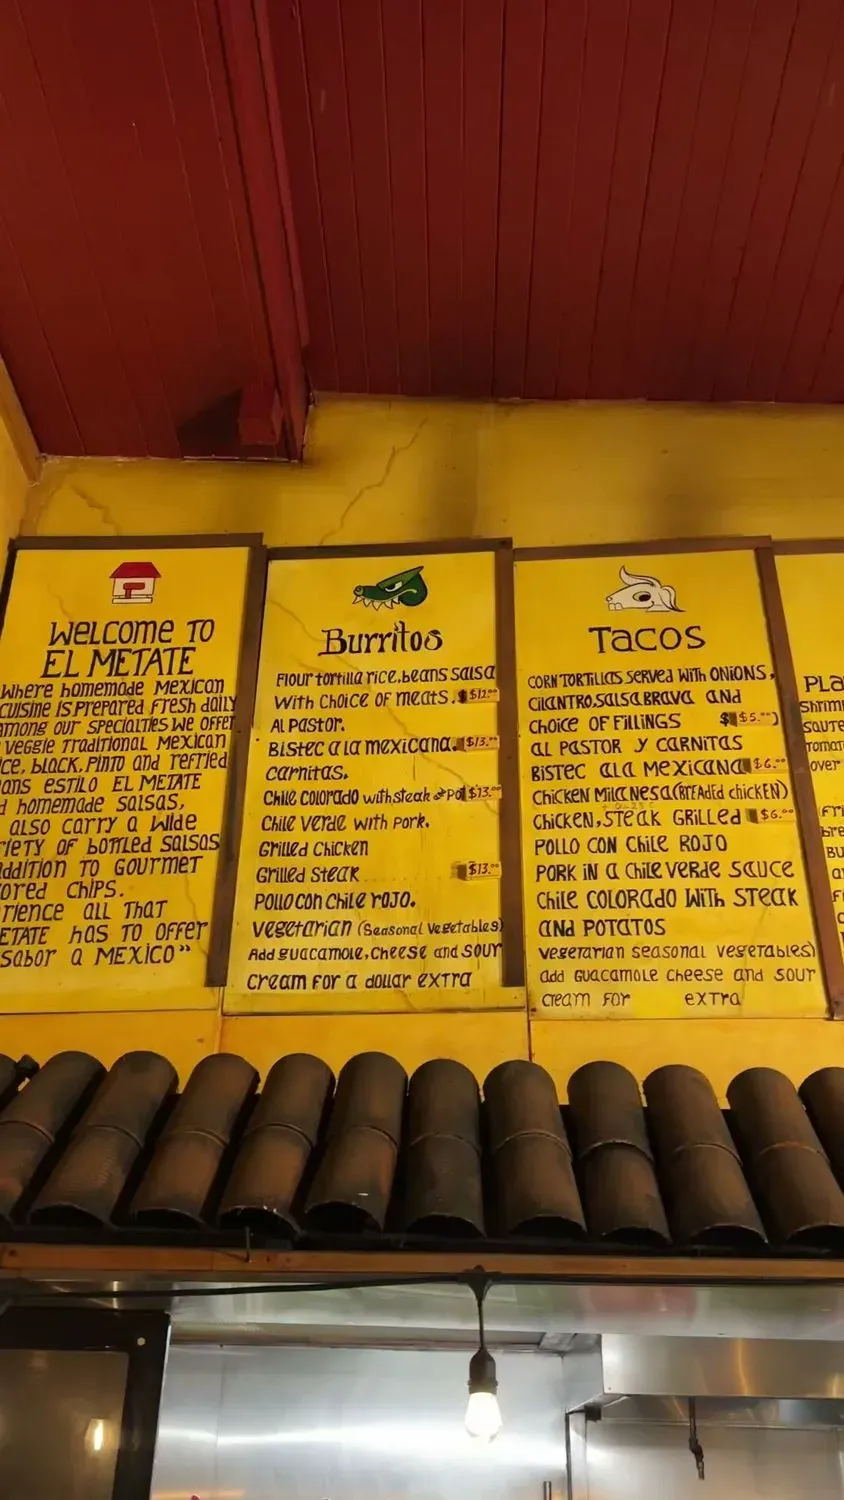 WELCOME TO
EL METATE
WHERE HOMEMADE MEXICAN
CUISINE IS PREPARED FRESH DAILY
AMONG OUR SPECIALTIES WE OFFER
VEGGIE TRADITIONAL MEXICAN
BLACK, PINTO AND REFRIED
ESTILO EL METATE
HOMEMADE SALSAS,
ALSO CARRY A WIDE
OF BOTTLED SALSAS
TO GOURMET
CHIPS.
ALL THAT
HAS TO OFFER
SABOR A MEXICO"
Burritos
Flour tortilla rice, beans salsa
With Choice of meats. $12.00
Al Pastor.
Bistec a la mexicana. $13.00
Carnitas.
Chile Colorado with steak $13.00
Chile Verde with Pork.
Grilled Chicken
Grilled Steak $13.00
Pollo con Chile rojo.
Vegetarian (Seasonal Vegetables)
Add guacamole, cheese and sour
cream for a dollar extra
TACOS
CORN TORTILLAS SERVED WITH ONIONS,
CILANTRO, SALSA BRAVA AND
CHOICE OF FILLINGS $ $5.00)
AL PASTOR Y CARNITAS
BISTEC ALA MEXICANA $6.00
CHICKEN MILANESA (BREADED CHICKEN)
CHICKEN, STEAK GRILLED $6.00
POLLO CON CHILE ROJO
PORK IN A CHILE VERDE SAUCE
CHILE COLORADO WITH STEAK
AND POTATOS
VEGETARIAN SEASONAL VEGETABLES)
ADD GUACAMOLE CHEESE AND SOUR
CREAM FOR EXTRA